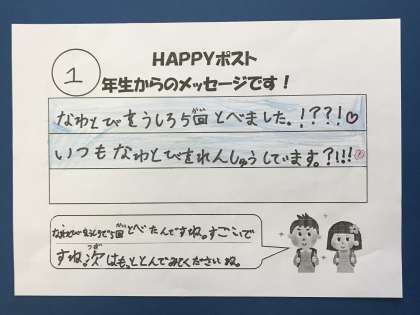 1
HAPPYポスト
年生からのメッセージです！
なわとびをうしろ5回とべました。!???!♡
いつもなわとびをれんしゅうしています。?!!!
なわとびをうしろで5回とべたんですね。すごいで
すね。次はもっととんでみてくださいね。